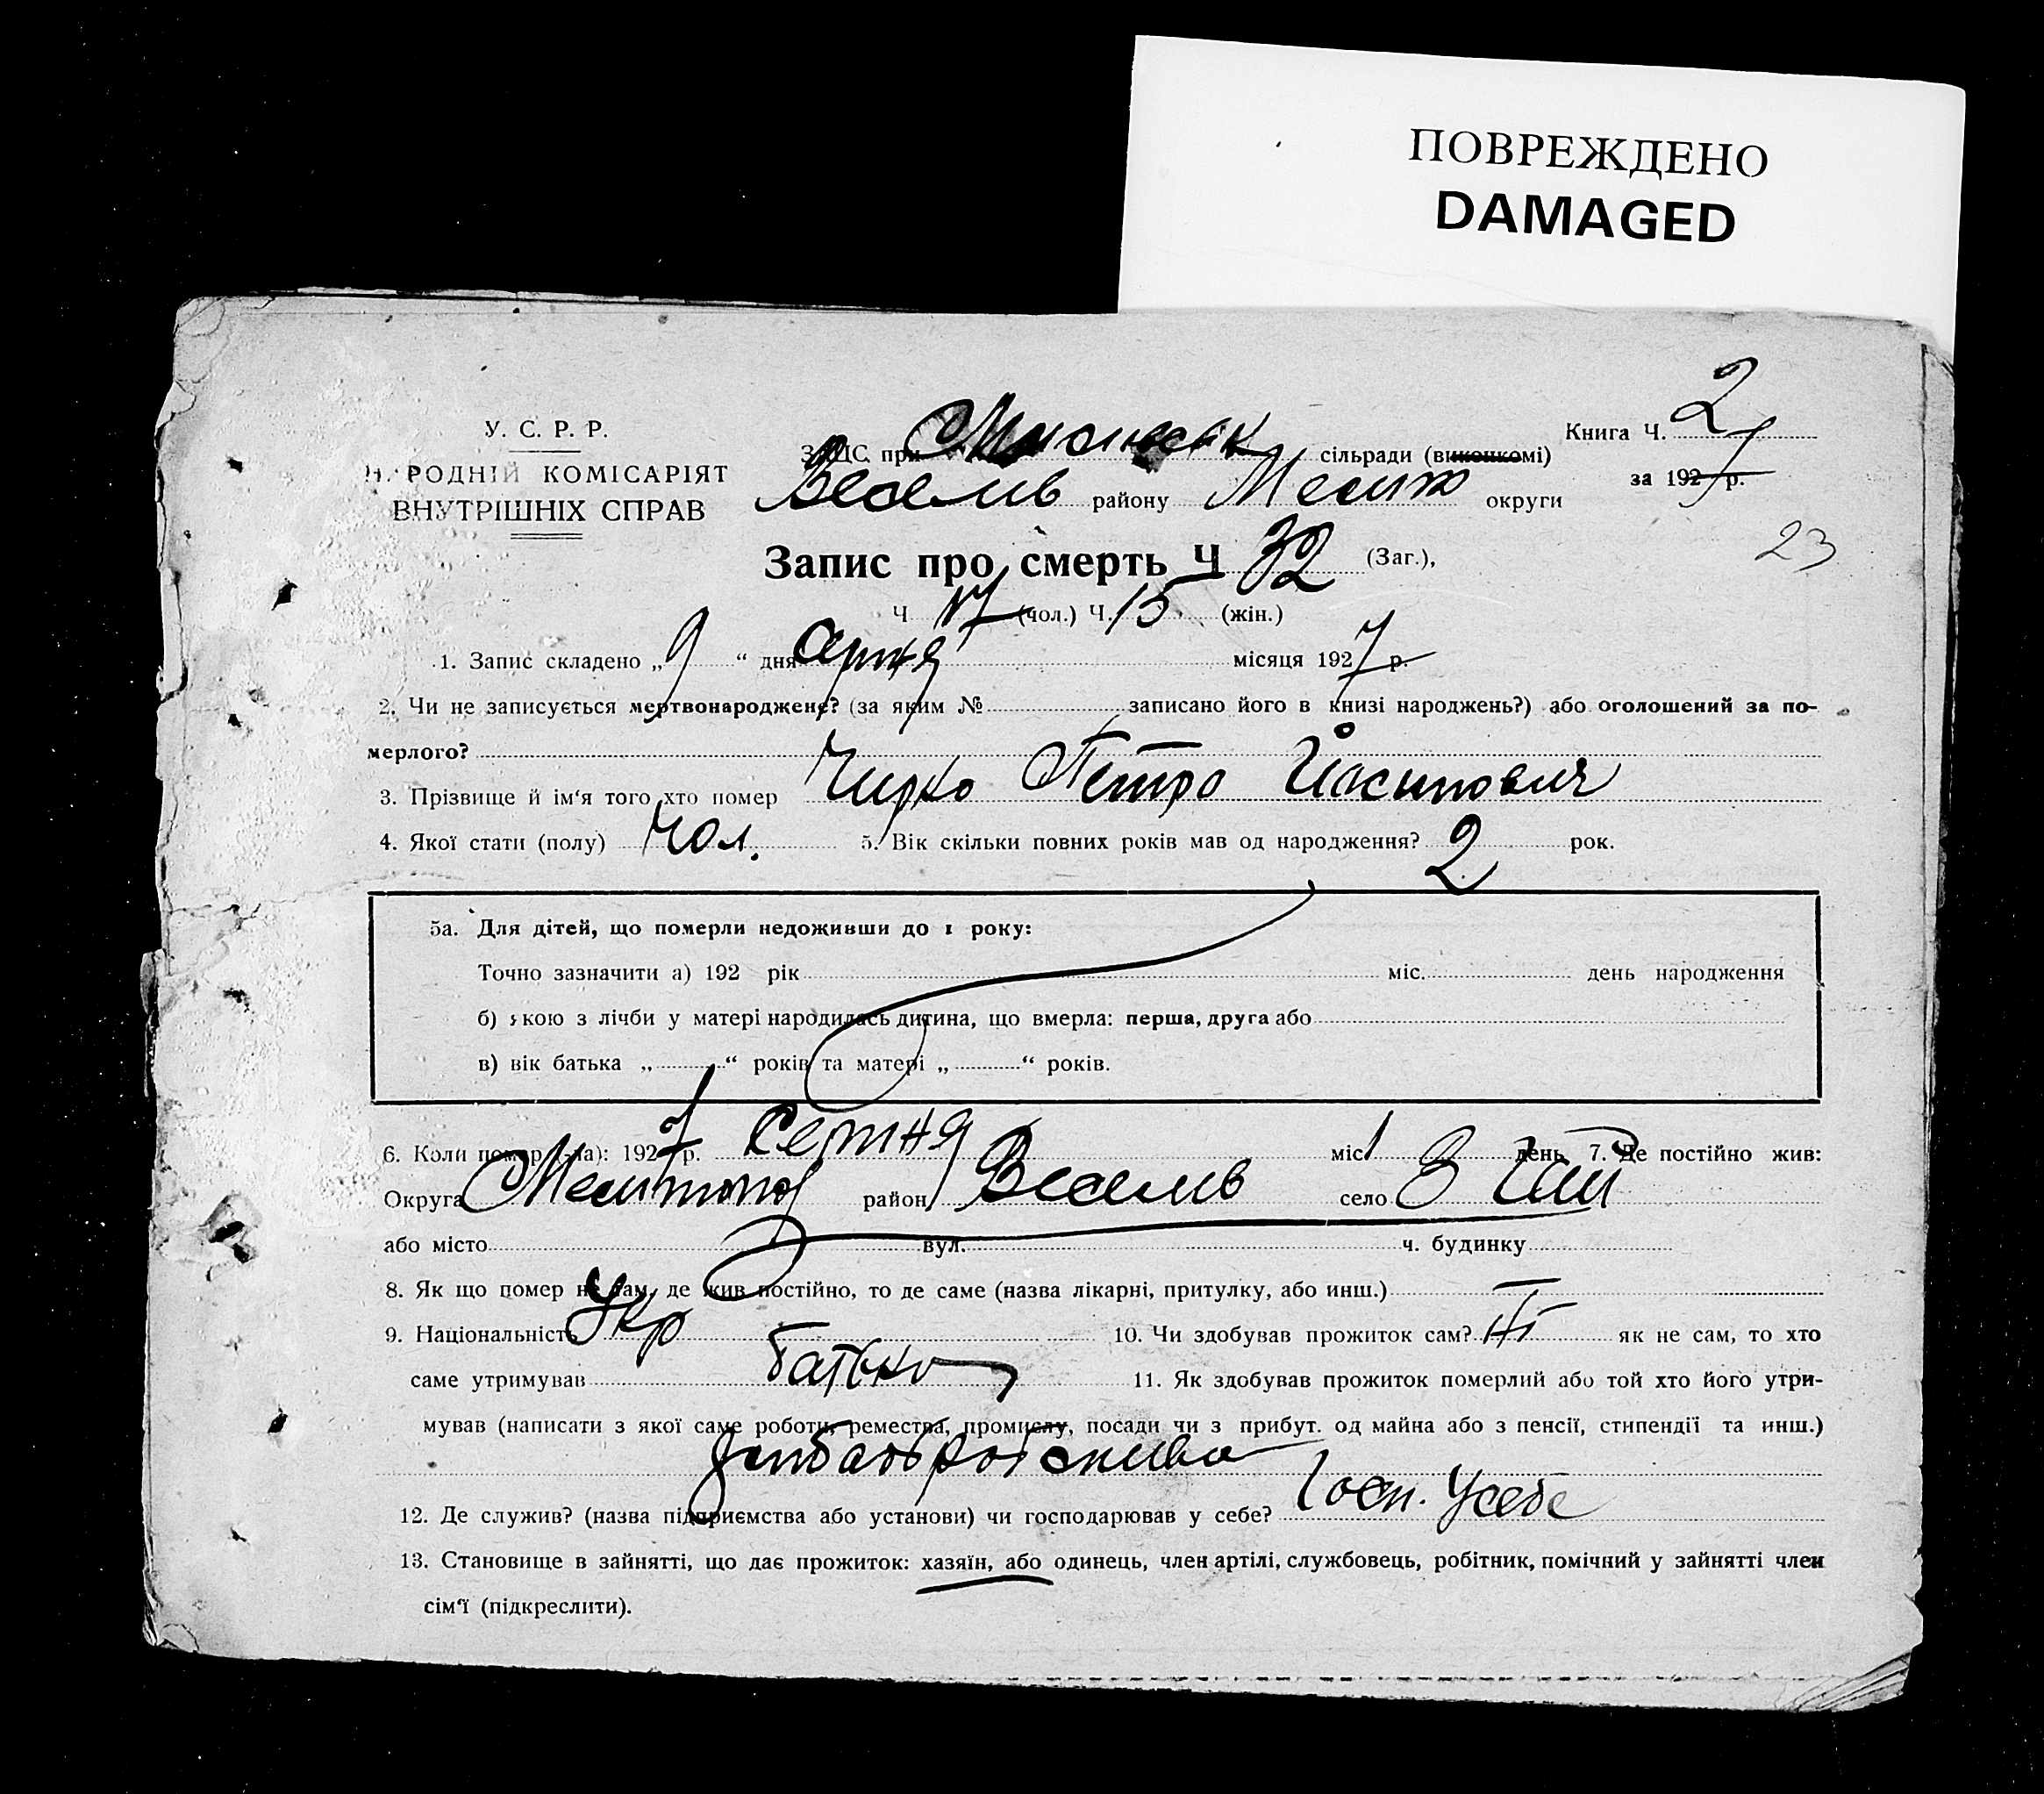 ПОВРЕЖДЕНО
DAMAGED
У. С. Р. Р.
НАРОДНІЙ КОМІСАРІЯТ
ВНУТРІШНІХ СПРАВ
ЗАГС при сільради (виконкомі)
Книга Ч. 2
Веселів району Меліт округи
за 1927 р.
23
Запис про смерть Ч 32 (Заг.),
Ч 17 (чол.) Ч. 15 (жін.)
1. Запис складено „ 9 “ дня серпня місяця 1927 р.
2. Чи не записується мертвонароджене? (за яким № записано його в книзі народжень?) або оголошений за по-
мерлого?
3. Прізвище й ім‘я того хто помер Чирко Петро Йосипович
4. Якої стати (полу) чол. 5. Вік скільки повних років мав од народження? 2 рок.
5а. Для дітей, що померли недоживши до 1 року:
Точно зазначити а) 192 рік міс. день народження
б) якою з лічби у матері народилась дитина, що вмерла: перша, друга або
в) вік батька „ “ років та матері „ “ років.
6. Коли помер (-ла): 1927 р. серпня міс день 7. Де постійно жив:
Округа Мелітопол район Веселів село
або місто вул. ч. будинку
8. Як що помер не там, де жив постійно, то де саме (назва лікарні, притулку, або инш.) —
9. Національність Укр 10. Чи здобував прожиток сам? Ні як не сам, то хто
саме утримував батько 11. Як здобував прожиток померлий або той хто його утри-
мував (написати з якої саме роботи, ремества, промислу, посади чи з прибут. од майна або з пенсії, стипендії та инш.)
12. Де служив? (назва підприємства або установи) чи господарював у себе? Госп. у себе
13. Становище в зайнятті, що дає прожиток: хазяїн, або одинець, член артілі, службовець, робітник, помічний у зайнятті член
сім‘ї (підкреслити).